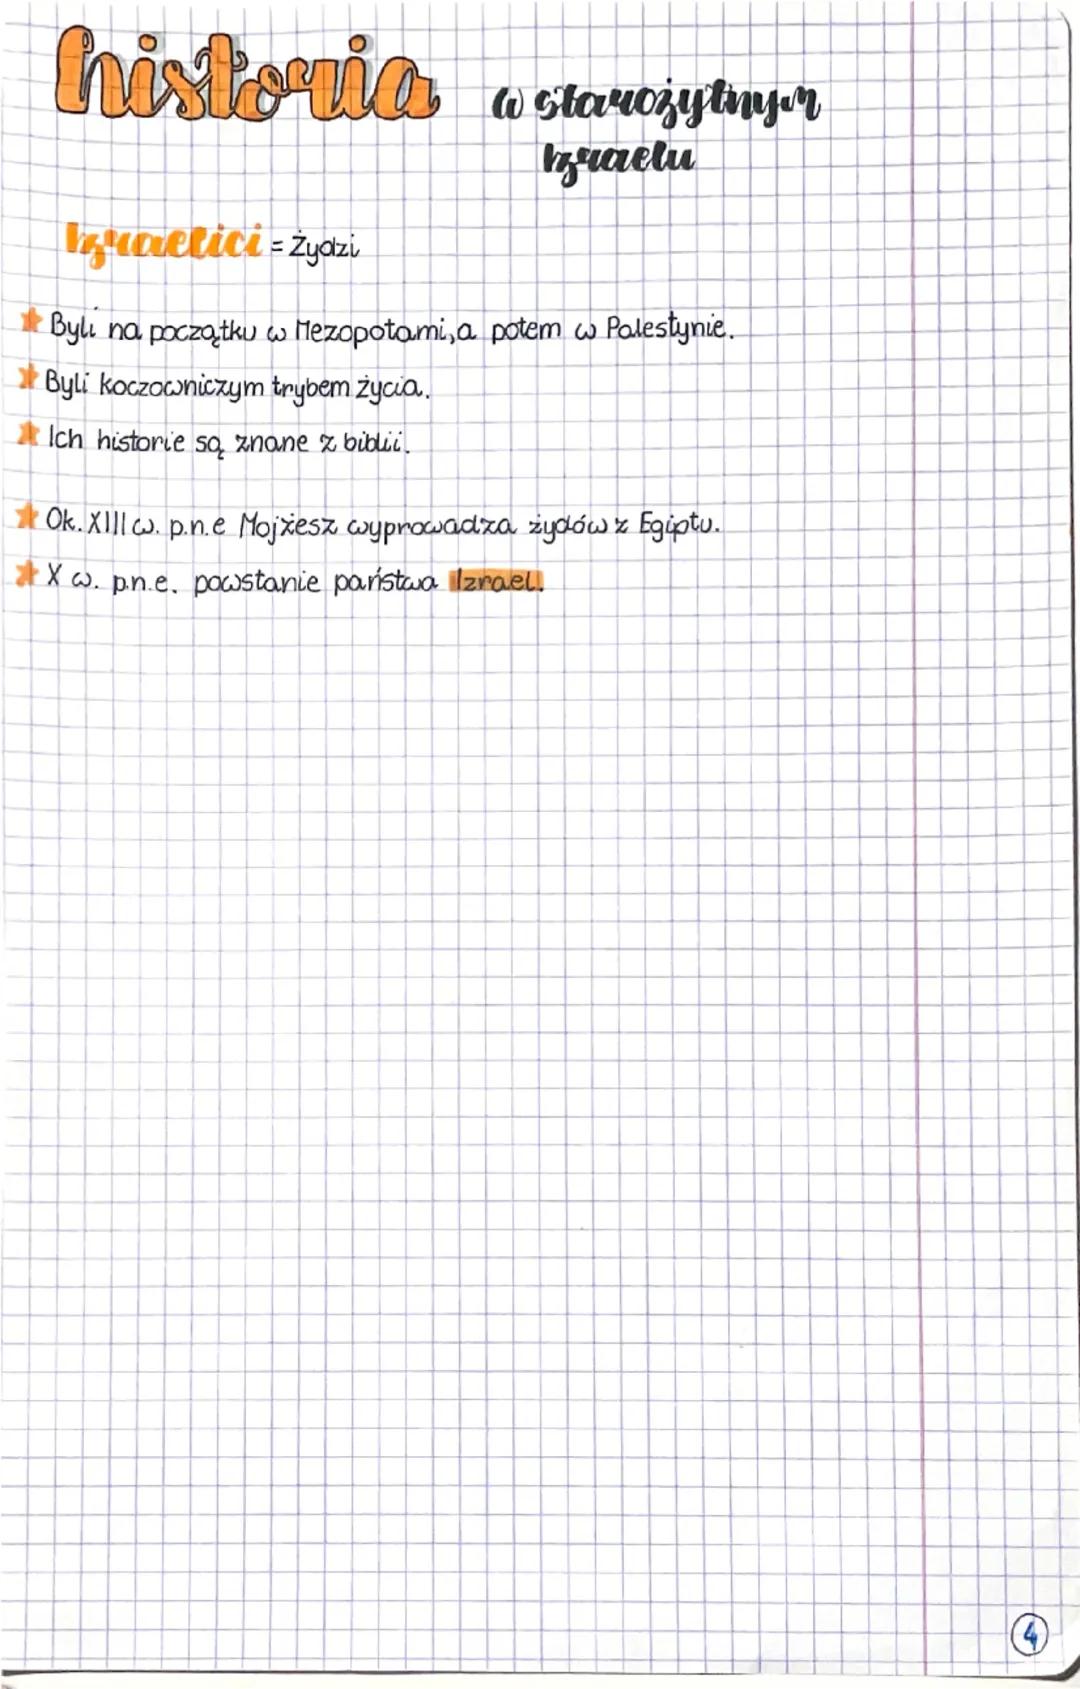 historia w starożytnym
Izraelu
Izraelici = Żydzi
Byli na początku w Mezopotami, a potem w Palestynie.
Byli koczowniczym trybem życia.
Ich historie są znane z biblii.
Ok. XIII w. p.n.e Mojżesz wyprowadza żydów z Egiptu.
X w. p.n.e. powstanie państwa Izrael.
4